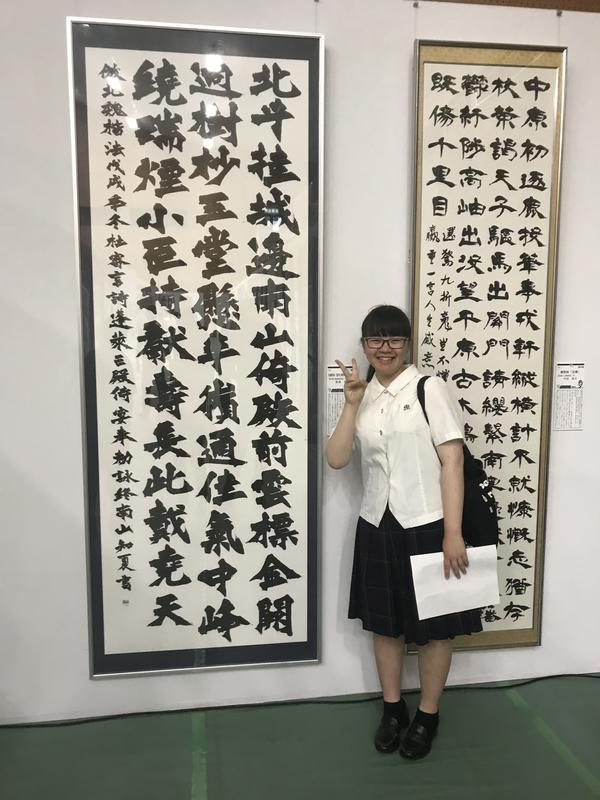 北斗挂城邊南山倚殿前雲標金闕
迥樹杪玉堂懸半嶺通佳氣中峰
繞瑞煙小臣持獻壽長此戴堯天
倣北魏楷法戊戌季冬杜審言詩蓬萊三殿侍宴奉勅詠終南山知夏書
中原初逐鹿投筆事戎軒縱橫計不就慷慨志猶存
杖策謁天子驅馬出關門請纓繫南粤
鬱紆陟高岫出没望平原古木鳴
既傷千里目
還驚九折魂豈不憚
重一言人生感意